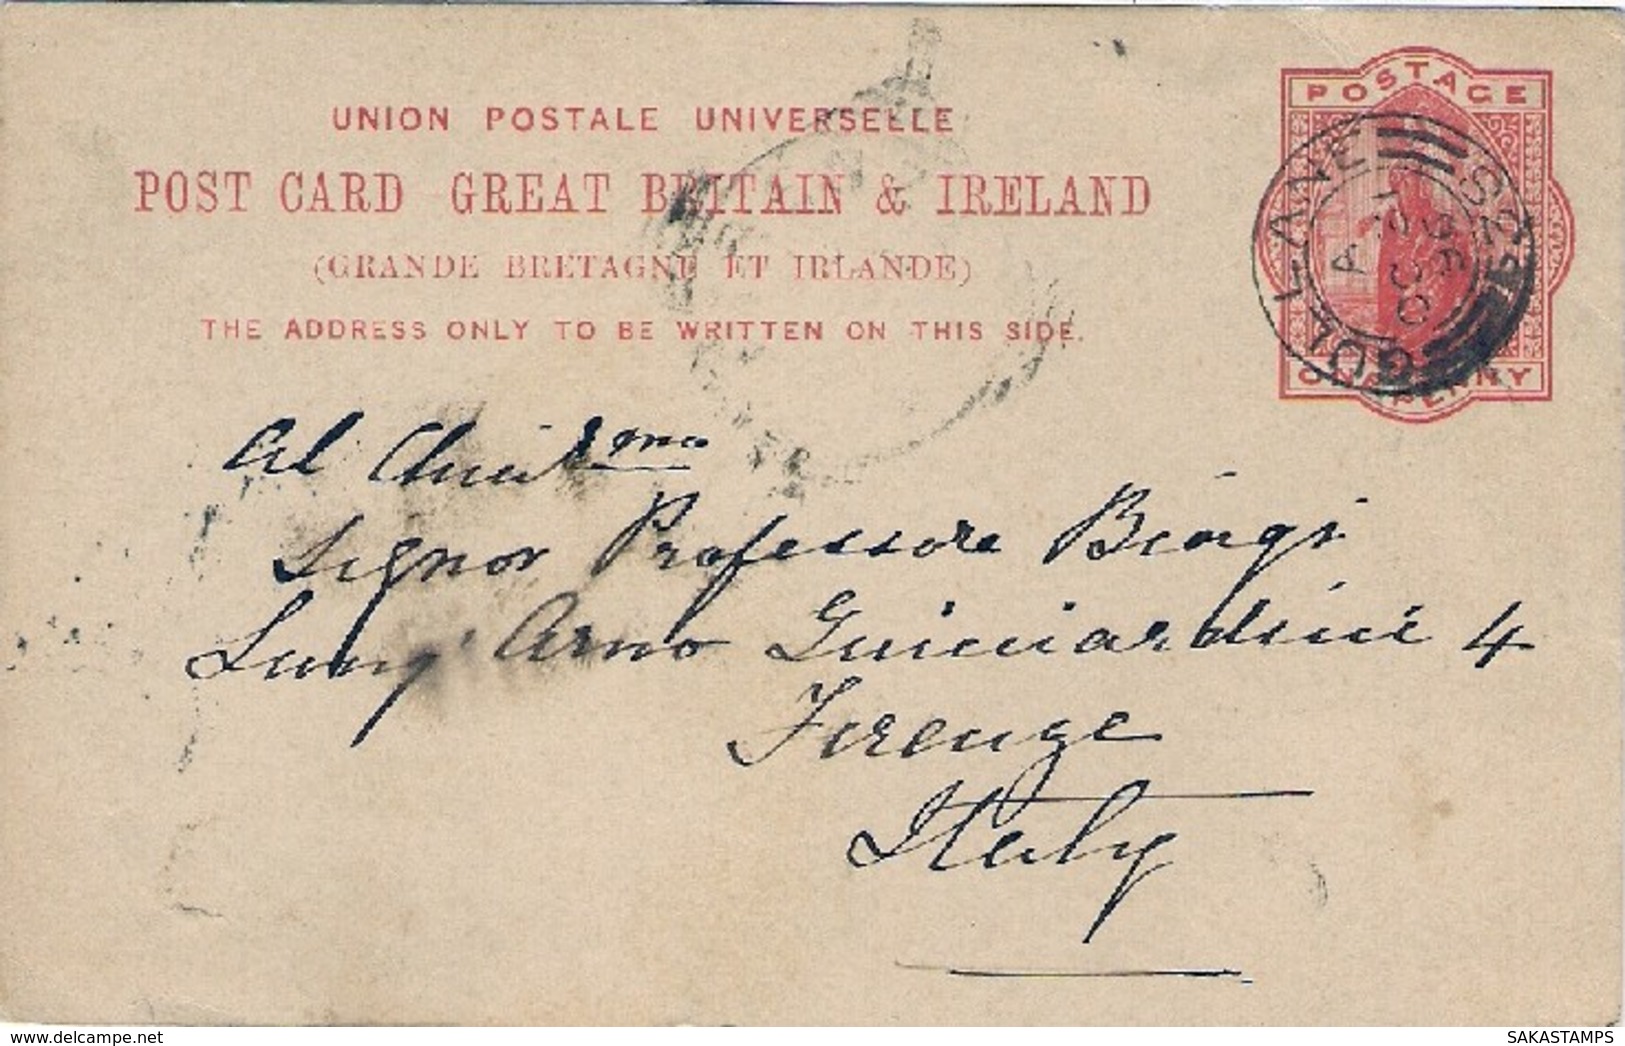 UNION POSTALE UNIVERSELLE
POST CARD GREAT BRITAIN & IRELAND
(GRANDE BRETAGNE ET IRLANDE)
THE ADDRESS ONLY TO BE WRITTEN ON THIS SIDE.
POSTAGE
ONE PENNY
GUL LANE
Al Chiar.mo
Signor Professore Biagi
Lung' Arno Guicciardini 4
Firenze
Italy
delcampe.net
SAKASTAMPS